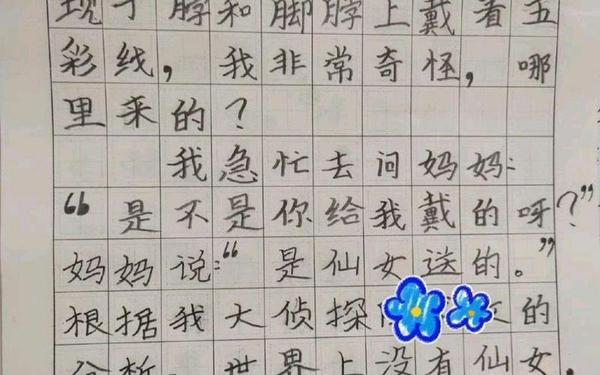 现了脖和脚脖上戴着五
彩线，我非常奇怪，哪
里来的？
我急忙去问妈妈：
“是不是你给我戴的呀？”
妈妈说：“是仙女送的。”
根据我大侦探的
分析，世界上没有仙女，